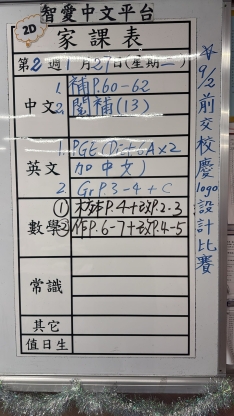 智愛中文平台
2D
家課表
第2週 1月27日(星期二)
中文
1. 補P.60-62
2. 閱補(13)
英文
1. PGE (Dict 6A×2
加中文)
2. Gr P.3-4 + C
數學
① P.4+ P.2-3
② 作P.6-7+ P.4-5
常識
其它
值日生
9/2前交校慶logo設計比賽